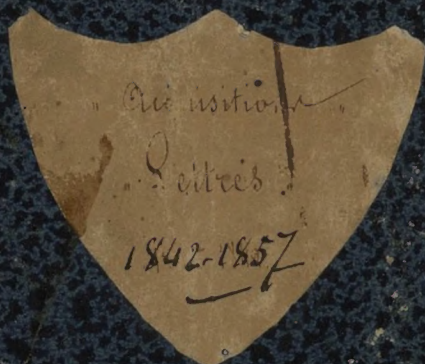 " Acquisitions "
" Lettres "
1842-1857